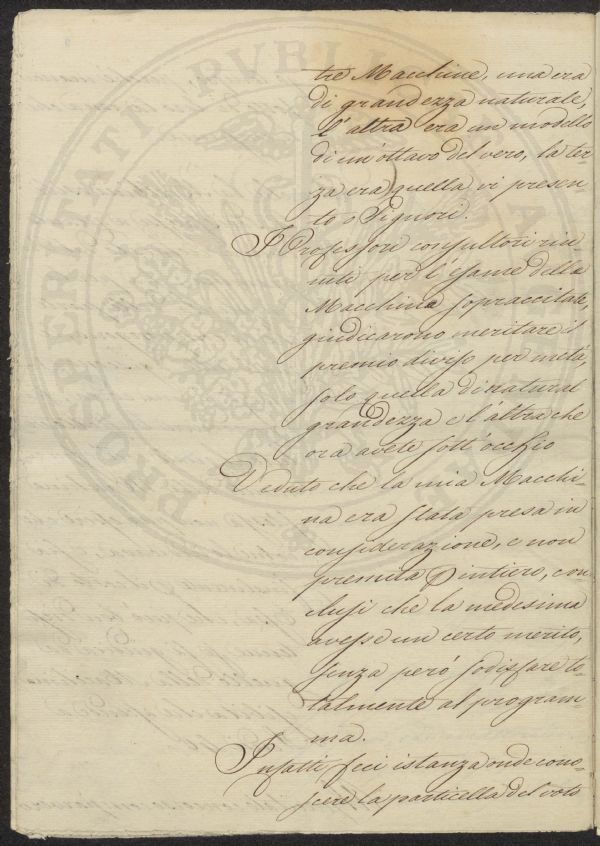 tre Macchine, una era
di grandezza naturale,
l'altra era un modello
di un'ottavo del vero, la ter-
za era quella vi presen-
to o Signori.
I Professori consultori riu-
niti per l'esame della
Macchina sopraccitate,
giudicarono meritare il
premio diviso per metá,
solo quella di natural
grandezza e l'altra che
ora avete sott'occhio
Veduto che la mia Macchi-
na era stata presa in
considerazione, e non
premiata intiero, con-
clusi che la medesima
avesse un certo merito,
senza peró sodisfare to-
talmente al program-
ma.
Infatti feci istanza onde cono-
scere la particella del voto
PROSPERITATI PVBLICAE